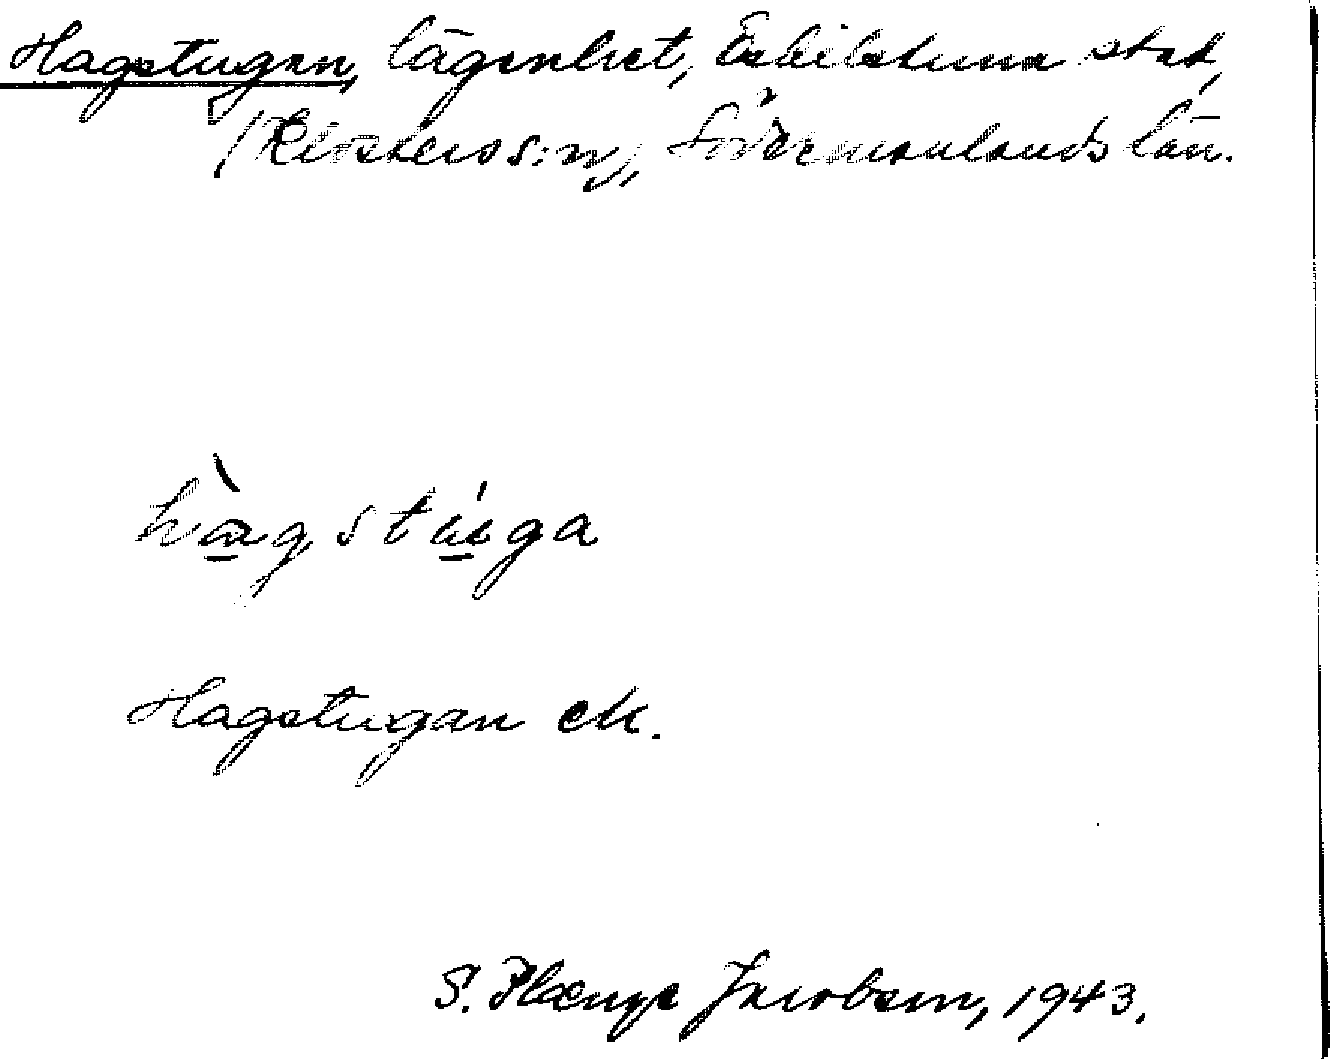 Hagstugan, lägenhet, Eskilstuna stad,
(Klosters s:n), Södermanlands län.
hàgstúga
Hagstugan ek.
S. Plænge Jacobson, 1943.